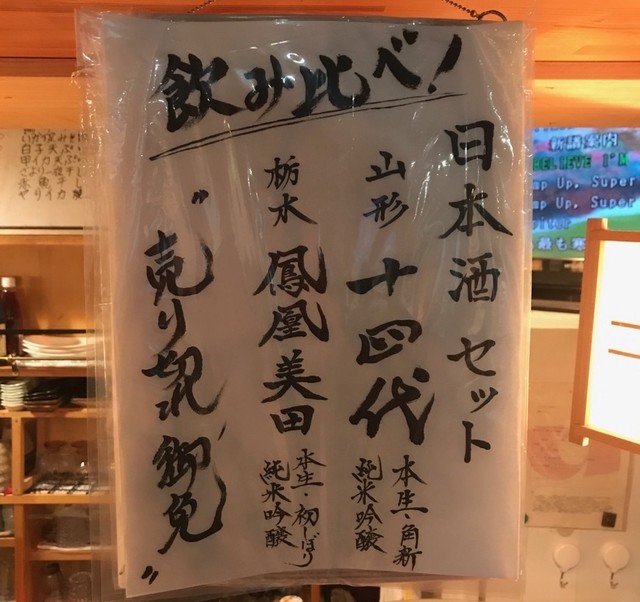 飲み比べ!
日本酒 セット
山形 十四代
本生・角新
純米吟醸
栃木 鳳凰美田
本生・初しぼり
純米吟醸
"売り切れ御免"
新譜案内
BELIEVE I'M
mp Up, Super
mp Up, Super
最も寒